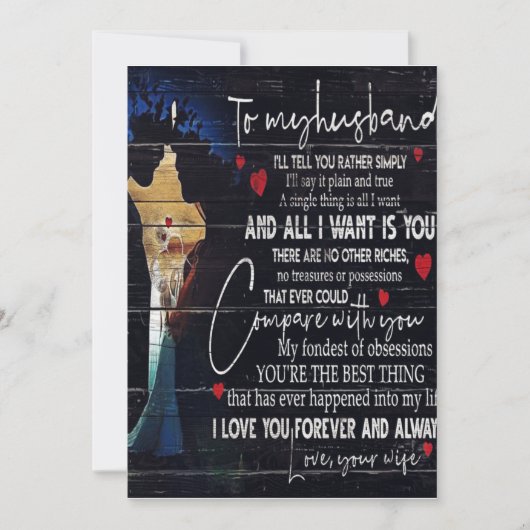 To my husband
I'LL TELL YOU RATHER SIMPLY
I'll say it plain and true
A single thing is all I want
AND ALL I WANT IS YOU
THERE ARE NO OTHER RICHES,
no treasures or possessions
THAT EVER COULD
Compare with you
My fondest of obsessions
YOU'RE THE BEST THING
that has ever happened into my lif
I LOVE YOU FOREVER AND ALWAY
Love, your wife